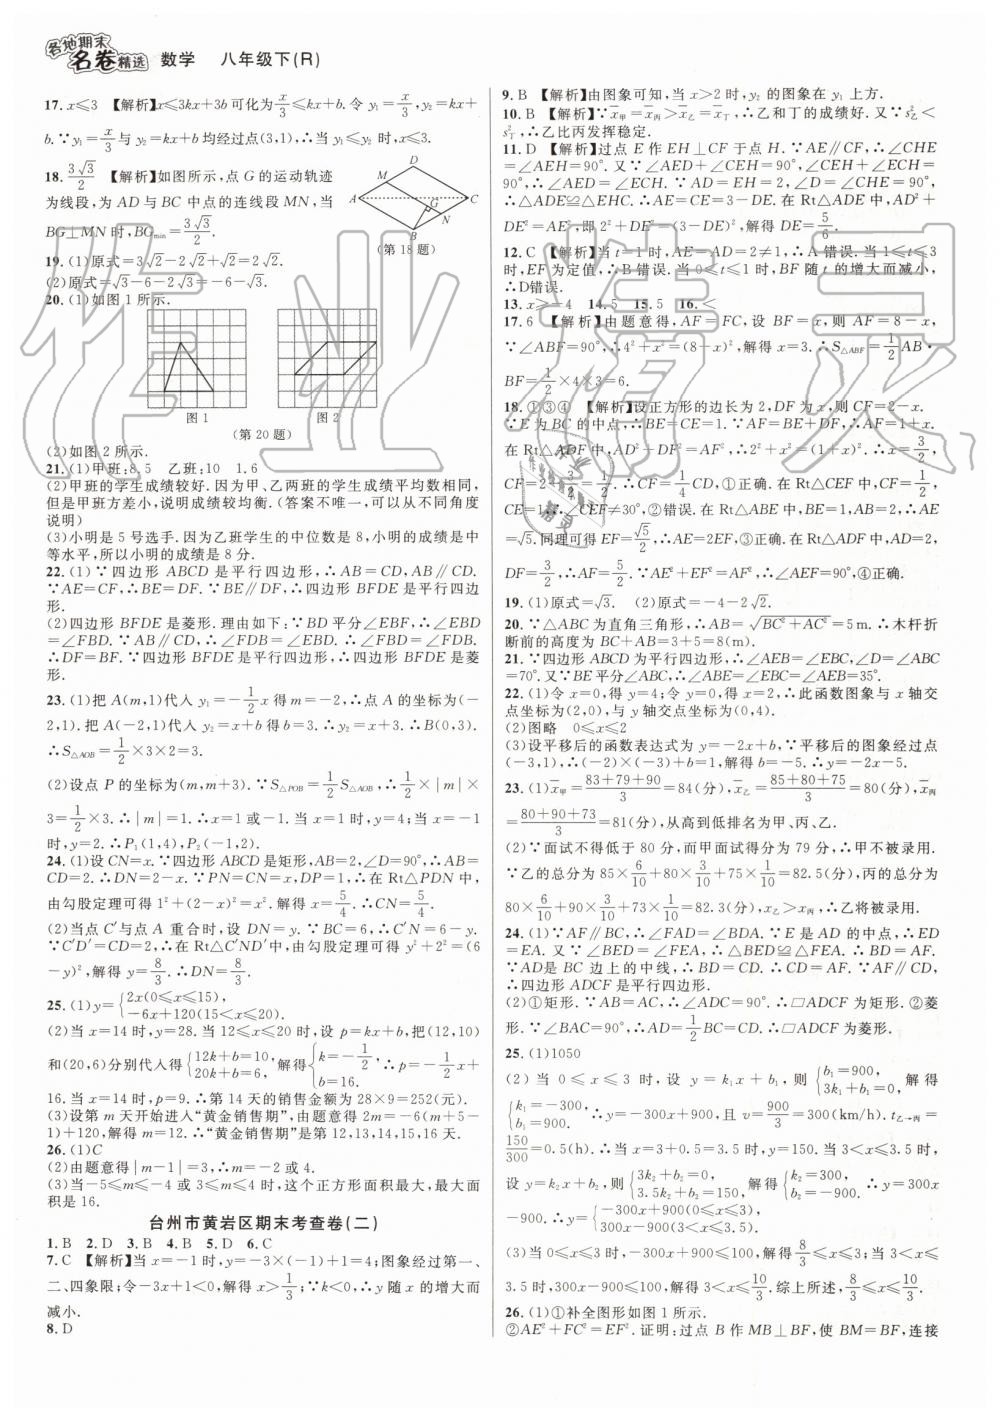 各地期末
名卷精选 数学 八年级下(R)
17. x≤3 【解析】x≤3kx+3b可化为x/3≤kx+b. 令 y₁=x/3, y₂=kx+
b. ∵y₁=x/3与 y₂=kx+b均经过点(3,1), ∴当 y₁≤y₂ 时, x≤3.
18. 3√3/2 【解析】如图所示, 点 G 的运动轨迹
为线段, 为 AD 与 BC 中点的连线段 MN, 当
BG⊥MN 时, BGmin=3√3/2.
D
M
A
C
G
N
B
(第 18 题)
19. (1)原式=3√2-2√2+√2=2√2.
(2)原式=√3-6-2√3=-6-√3.
20. (1)如图 1 所示.
图 1 图 2
(第 20 题)
(2)如图 2 所示.
21. (1)甲班: 8.5 乙班: 10 1.6
(2)甲班的学生成绩较好. 因为甲、乙两班的学生成绩平均数相同,
但甲班方差小, 说明成绩较均衡. (答案不唯一, 可以从不同角度
说明)
(3)小明是 5 号选手. 因为乙班学生的中位数是 8, 小明的成绩是中
等水平, 所以小明的成绩是 8 分.
22. (1)∵四边形 ABCD 是平行四边形, ∴AB=CD, AB∥CD.
∵AE=CF, ∴BE=DF. ∵BE∥DF, ∴四边形 BFDE 是平行四边
形.
(2)四边形 BFDE 是菱形. 理由如下: ∵BD 平分∠EBF, ∴∠EBD
=∠FBD. ∵AB∥CD, ∴∠FDB=∠EBD. ∴∠FBD=∠FDB.
∴DF=BF. ∵四边形 BFDE 是平行四边形, ∴四边形 BFDE 是菱
形.
23. (1)把 A(m,1)代入 y₁=-1/2x 得 m=-2, ∴点 A 的坐标为(-
2,1). 把 A(-2,1)代入 y₂=x+b 得 b=3. ∴y₂=x+3. ∴B(0,3).
∴S△AOB=1/2×3×2=3.
(2)设点 P 的坐标为(m,m+3). ∵S△POB=S△AOB, ∴1/2×|m|×
3=1/2×3. ∴|m|=1. ∴x=1 或-1. 当 x=1 时, y=4; 当 x=-1
时, y=2. ∴P₁(1,4), P₂(-1,2).
24. (1)设 CN=x. ∵四边形 ABCD 是矩形, AB=2, ∠D=90°, ∴AB=
CD=2. ∴DN=2-x. ∵PN=CN=x, PD=1, ∴在 Rt△PDN 中,
由勾股定理可得 1²+(2-x)²=x². 解得 x=5/4. ∴CN=5/4.
(2)当点 C′与点 A 重合时, 设 DN=y. ∵BC=6, ∴C′N=6-y.
∵C′D′=CD=2, ∴在 Rt△C′ND′中, 由勾股定理可得 y²+2²=(6
-y)², 解得 y=8/3. ∴DN=8/3.
25. (1)y={2x(0≤x≤15), -6x+120(15<x≤20).
(2)当 x=14 时, y=28. 当 12≤x≤20 时, 设 p=kx+b, 把(12,10)
和(20,6)分别代入得{12k+b=10, 20k+b=6, 解得{k=-1/2, b=16. ∴p=-1/2x+
16. 当 x=14 时, p=9. ∴第 14 天的销售金额为 28×9=252(元).
(3)设第 m 天开始进入“黄金销售期”, 由题意得 2m=-6(m+5-
1)+120, 解得 m=12. ∴“黄金销售期”是第 12,13,14,15,16 天.
26. (1)C
(2)由题意得|m-1|=3, ∴m=-2 或 4.
(3)当-5≤m≤-4 或 3≤m≤5 时, 这个正方形面积最大, 最大面
积是 16.
台州市黄岩区期末考查卷(二)
1. B 2. D 3. B 4. B 5. D 6. C
7. C 【解析】当 x=-1 时, y=-3×(-1)+1=4; 图象经过第一、
二、四象限; 令-3x+1<0, 解得 x>1/3; ∵k<0, ∴y 随 x 的增大而
减小.
8. D
9. B 【解析】由图象可知, 当 x>2 时, y₂ 的图象在 y₁ 上方.
10. B 【解析】∵x̄甲=x̄丙>x̄乙=x̄丁, ∴乙和丁的成绩好. 又∵s²乙<
s²丁, ∴乙比丙发挥稳定.
11. D 【解析】过点 E 作 EH⊥CF 于点 H. ∵AE∥CF, ∴∠CHE
=∠AEH=90°. 又∵∠AED+∠CEH=90°, ∠CEH+∠ECH=
90°, ∴∠AED=∠ECH. ∵AD=EH=2, ∠D=∠CHE=90°,
∴△ADE≌△EHC. ∴AE=CE=3-DE. 在 Rt△ADE 中, AD²+
DE²=AE², 即 2²+DE²=(3-DE)², 解得 DE=5/6.
12. C 【解析】当 t=1 时, AE=AD=2≠1, ∴A 错误. 当 1≤t≤3
时, EF 为定值, ∴B 错误. 当 0≤t≤1 时, BF 随 t 的增大而减小,
∴D错误.
13. x≥-4 14. 5 15. 5 16. <
17. 6 【解析】由题意得, AF=FC, 设 BF=x, 则 AF=8-x.
∵∠ABF=90°, ∴4²+x²=(8-x)², 解得 x=3. ∴S△ABF=1/2AB·
BF=1/2×4×3=6.
18. ①③④ 【解析】设正方形的边长为 2, DF 为 x, 则 CF=2-x.
∵E 为 BC 的中点, ∴BE=CE=1. ∵AF=DF+CE, ∴AF=x+1.
在 Rt△ADF 中, AD²+DF²=AF², ∴2²+x²=(1+x)². ∴x=3/2,
CF=2-3/2=1/2. ∴CF=1/4CD, ①正确. 在 Rt△CEF 中, CF=1/2,
CE=1, ∴∠CEF≠30°, ②错误. 在 Rt△ABE 中, BE=1, AB=2, ∴AE
=√5. 同理可得 EF=√5/2, ∴AE=2EF, ③正确. 在 Rt△ADF 中, AD=2,
DF=3/2, ∴AF=5/2. ∵AE²+EF²=AF², ∴∠AEF=90°, ④正确.
19. (1)原式=√3. (2)原式=-4-2√2.
20. ∵△ABC 为直角三角形, ∴AB=√(BC²+AC²)=5 m. ∴木杆折
断前的高度为 BC+AB=3+5=8(m).
21. ∵四边形 ABCD 为平行四边形, ∴∠AEB=∠EBC, ∠D=∠ABC
=70°. 又∵BE 平分∠ABC, ∴∠ABE=∠EBC=∠AEB=35°.
22. (1)令 x=0, 得 y=4; 令 y=0, 得 x=2, ∴此函数图象与 x 轴交
点坐标为(2,0), 与 y 轴交点坐标为(0,4).
(2)图略 0≤x≤2
(3)设平移后的函数表达式为 y=-2x+b. ∵平移后的图象经过点
(-3,1), ∴(-2)×(-3)+b=1. 解得 b=-5. ∴y=-2x-5.
23. (1)x̄甲=(83+79+90)/3=84(分), x̄乙=(85+80+75)/3=80(分), x̄丙
=(80+90+73)/3=81(分), 从高到低排名为甲、丙、乙.
(2)∵面试不得低于 80 分, 而甲面试得分为 79 分, ∴甲不被录用.
∵乙的总分为 85×6/10+80×3/10+75×1/10=82.5(分), 丙的总分为
80×6/10+90×3/10+73×1/10=82.3(分), x乙>x丙, ∴乙将被录用.
24. (1)∵AF∥BC, ∴∠FAD=∠BDA. ∵E 是 AD 的中点, ∴ED
=EA. 又∵∠BED=∠FEA, ∴△BED≌△FEA. ∴BD=AF.
∵AD是 BC 边上的中线, ∴BD=CD. ∴CD=AF. ∵AF∥CD,
∴四边形 ADCF 是平行四边形.
(2)①矩形. ∵AB=AC, ∴∠ADC=90°. ∴▱ADCF 为矩形. ②菱
形. ∵∠BAC=90°, ∴AD=1/2BC=CD. ∴▱ADCF为菱形.
25. (1)1050
(2)当 0≤x≤3 时, 设 y=k₁x+b₁, 则{b₁=900, 3k₁+b₁=0, 解得
{k₁=-300, b₁=900. ∴y=-300x+900, 且 v=900/3=300(km/h). t乙→丙=
150/300=0.5(h). ∴当 x=3+0.5=3.5 时, y=150. 当 3<x≤3.5 时,
设 y=k₂x+b₂, 则{3k₂+b₂=0, 3.5k₂+b₂=150, 解得{k₂=300, b₂=-900. ∴y=300x
-900. ∴y={-300x+900(0≤x≤3), 300x-900(3<x≤3.5).
(3)当 0≤x≤3 时, -300x+900≤100, 解得8/3≤x≤3; 当 3<x≤
3.5 时, 300x-900≤100, 解得 3<x≤10/3. 综上所述, 8/3≤x≤10/3.
26. (1)①补全图形如图 1 所示.
②AE²+FC²=EF². 证明: 过点 B 作 MB⊥BF, 使 BM=BF, 连接
作业精灵